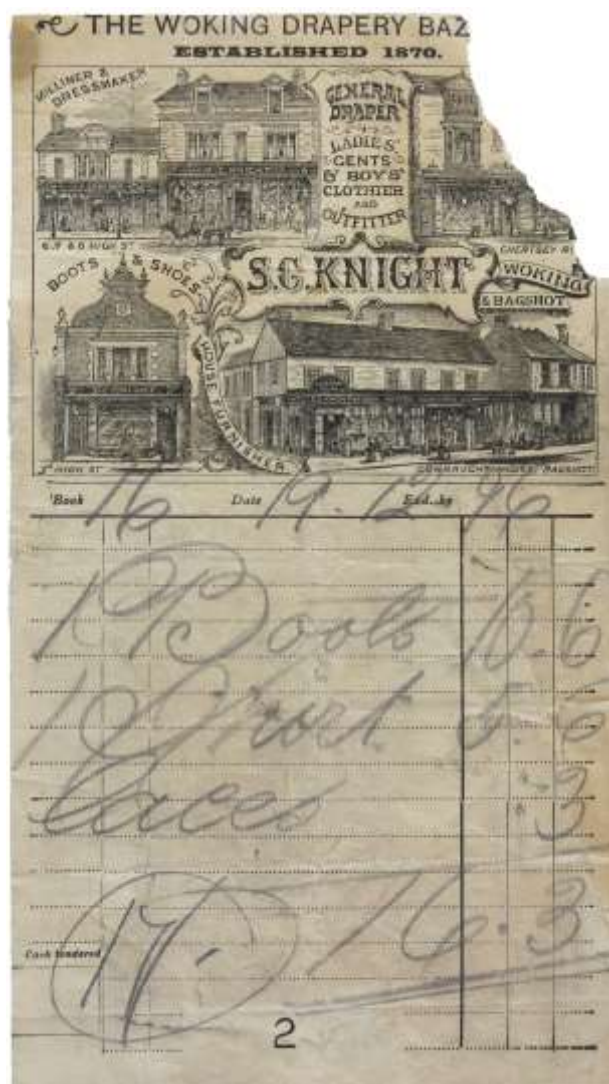 THE WOKING DRAPERY BAZ
ESTABLISHED 1870.
MILLINER & DRESSMAKER
GENERAL
DRAPER
LADIES'
GENTS
& BOYS'
CLOTHIER
AND
OUTFITTER
6.7 & 8 HIGH ST
CHERTSEY R
BOOTS & SHOES
S.C. KNIGHT
WOKING
& BAGSHOT
HOUSE FURNISHER
HIGH ST
CONNAUGHT HOUSE, BAGSHOT
Book 16 Date 19.12.96 Exd. by
1 P Boots 10.6
1 Shirt 5.6
Laces 3
16.3
Cash tendered 17/-
2